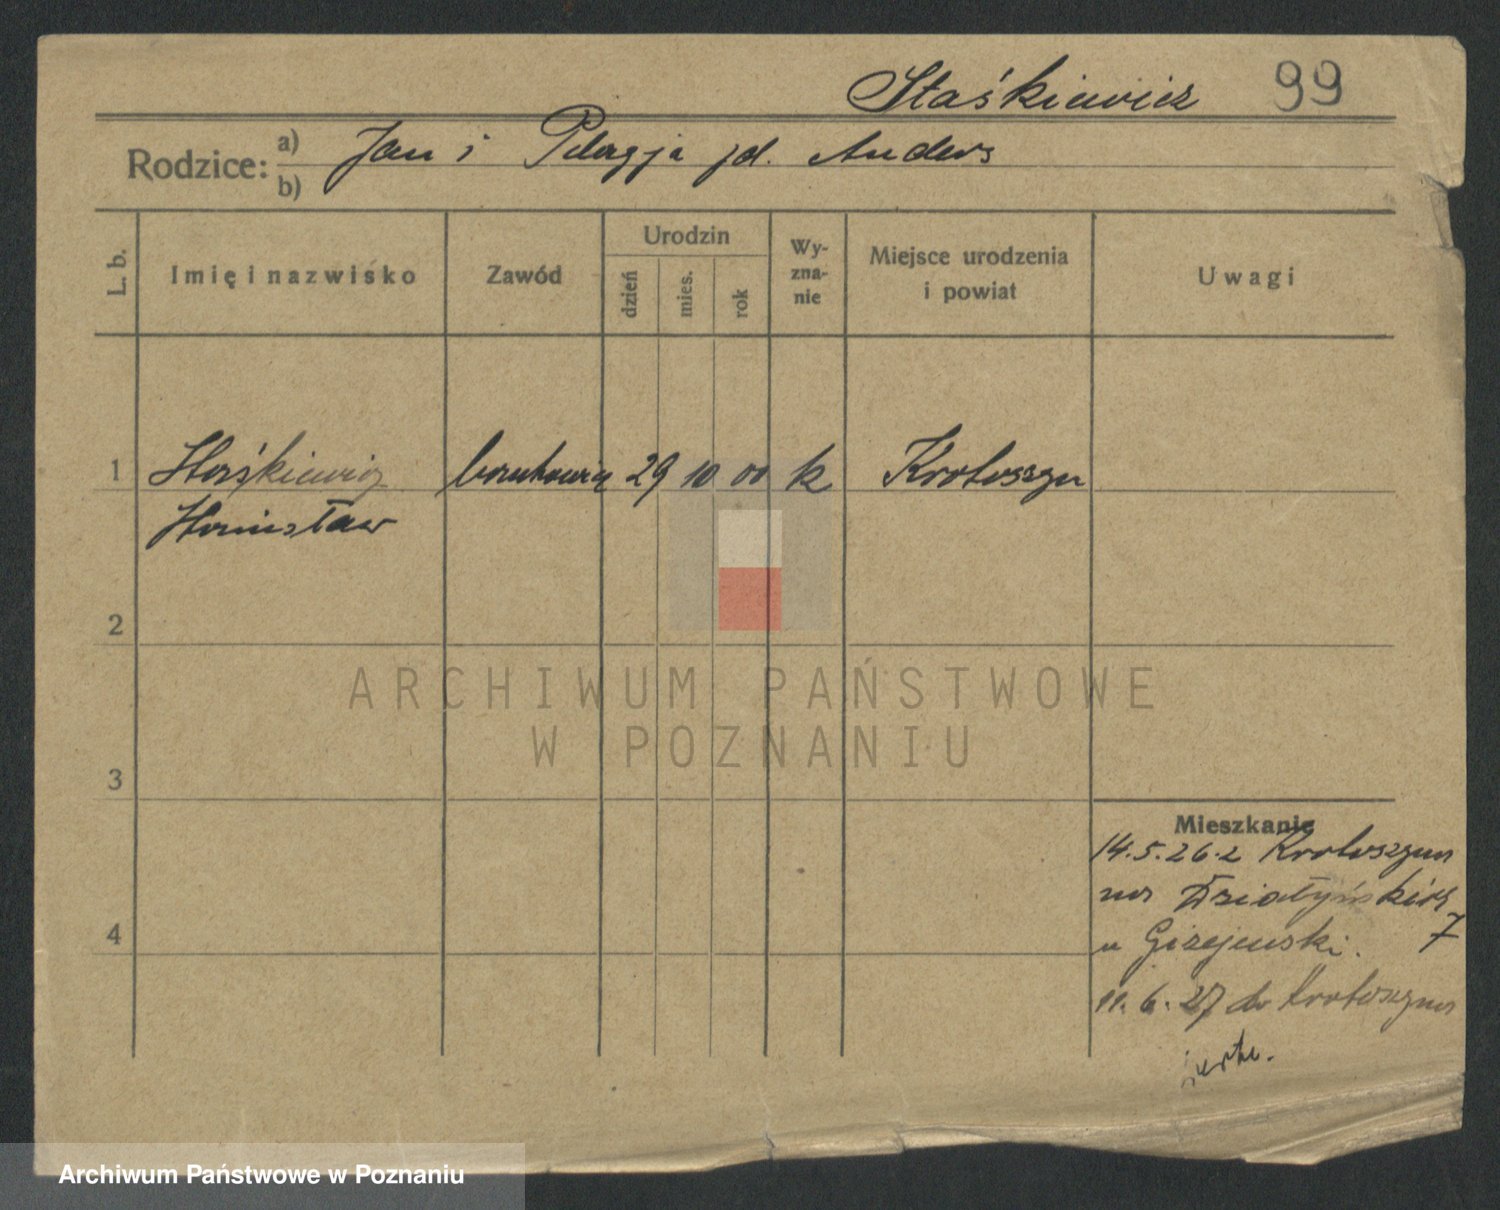 Staśkiewicz 99
Rodzice: a) b) Jan i Pelagja Anders
L. b. Imię i nazwisko Zawód Urodzin dzień mies. rok Wy-zna-nie Miejsce urodzenia i powiat Uwagi
1 Staśkiewicz 29 10 00 k Krotoszyn
Stanisław
2
ARCHIWUM PAŃSTWOWE
W POZNANIU
3
Mieszkanie
14.5.26. z Krotoszyna
na Działyńskich
7
u Giżejewski.
4
11.6.27 do Krotoszyna
Archiwum Państwowe w Poznaniu